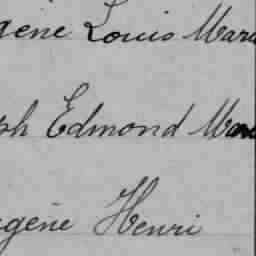 gène Louis Mari
ph Edmond Mari
gène Henri